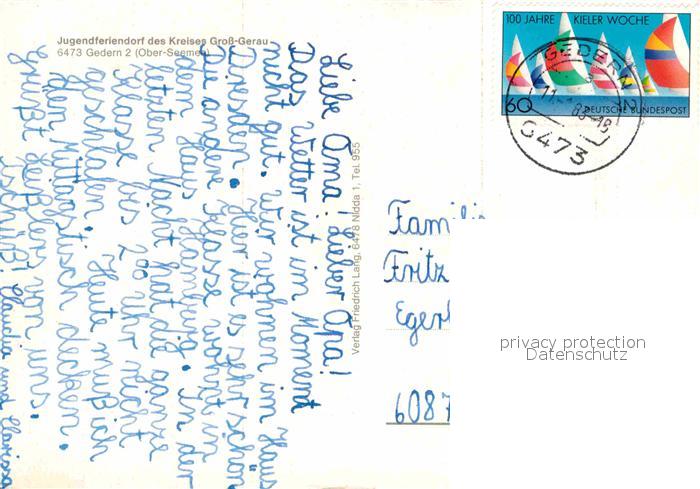 Jugendferiendorf des Kreises Groß-Gerau
6473 Gedern 2 (Ober-Seemen)
Liebe Oma! Lieber Opa!
Das Wetter ist im Moment
nicht gut. Wir wohnen im Haus
Dresden. Hier ist es sehr schön
Die andere Klasse wohnt in
dem Haus Hamburg. In der
letzten Nacht hat die ganze
Klasse bis 2°° uhr nicht
geschlafen. Heute muß ich
den Mittagstisch decken.
Grüßt von uns.
Claudia und Clarissa
Verlag Friedrich Lang, 6478 Nidda 1, Tel. 955
100 JAHRE KIELER WOCHE
60 DEUTSCHE BUNDESPOST
GEDERN 2
6473
Famili
Fritz
Eger
6087
privacy protection
Datenschutz